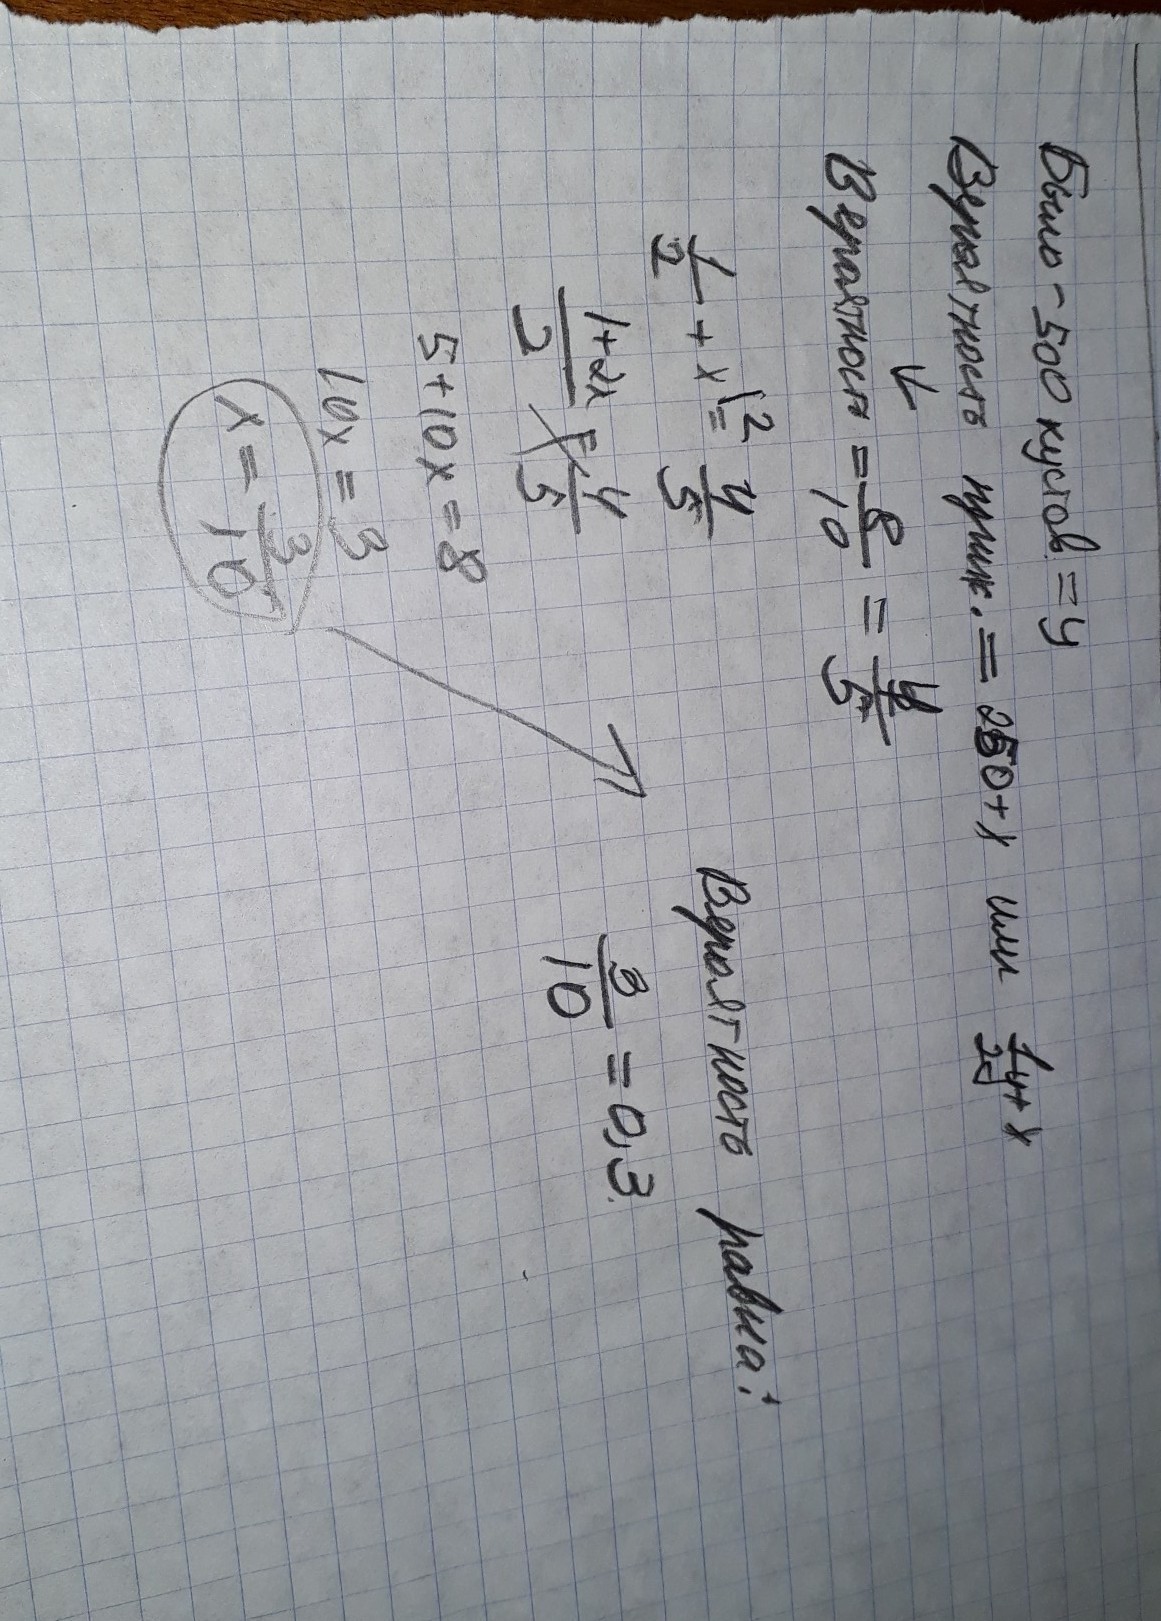 Было - 500 кустов = y
Вероятность приж. = 250 + x или 1/2 y + x
Вероятност = 8/10 = 4/5
1/2 + x |² = 4/5
1+2x/2 = 4/5
5 + 10x = 8
10x = 3
x = 3/10
Вероятность равна:
3/10 = 0,3